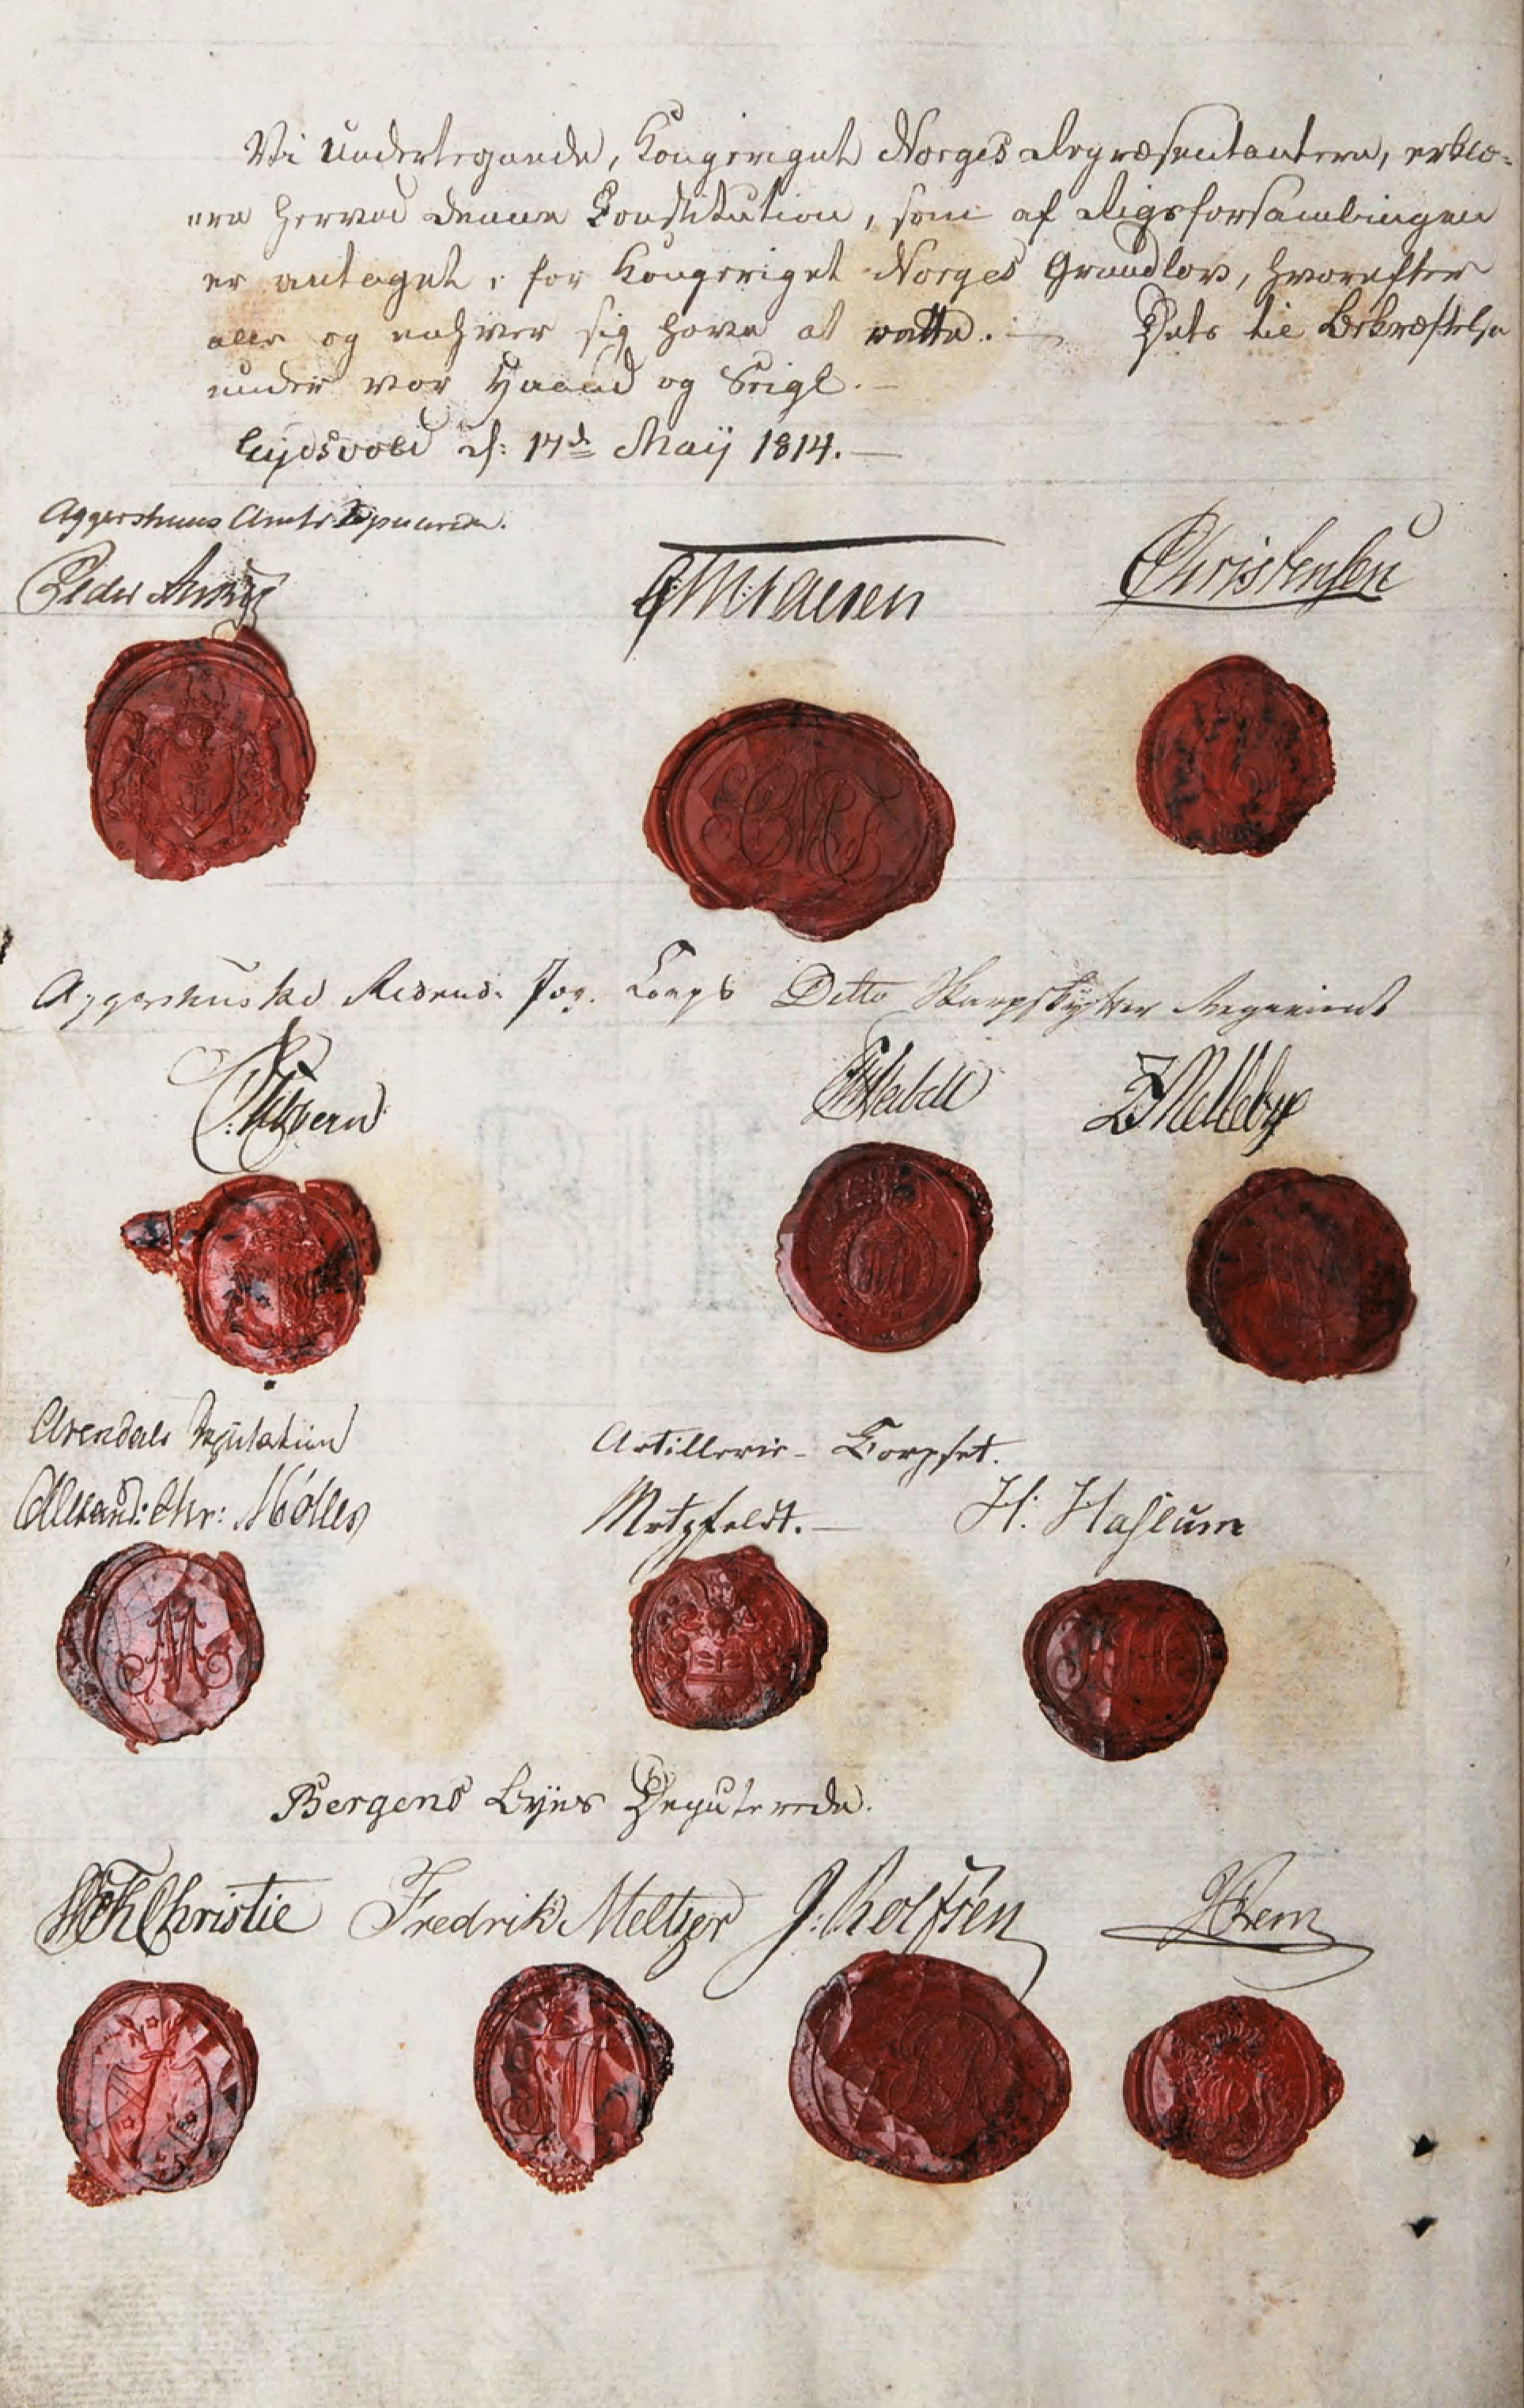 Vi undertegnede, Kongeriget Norges Repræsentantere, erklæ-
ere herved denne Constitution, som af Rigsforsamlingen
er antaget, for Kongeriget Norges Grundlov, hvorefter
alle og enhver sig have at rætte. — Dets til Bekræftelse
under vor Haand og Seigl. —
Eidsvold d: 17de Maÿ 1814. —
Aggershuus Amts Deputerede.
Peder Anker
Christensen
Aggershuske Ridend: Jæg. Corps Ditto Skarpskÿtter Regiment
Z Mellebye
Arendals Deputation
Alexand: Chr: Møller
M
Artillerie - Corpset.
Motzfeldt. —
H: Haslum
HH
Bergens Byes Deputerede.
WFKChristie Fredrik Meltzer J: Rolfsen JRein